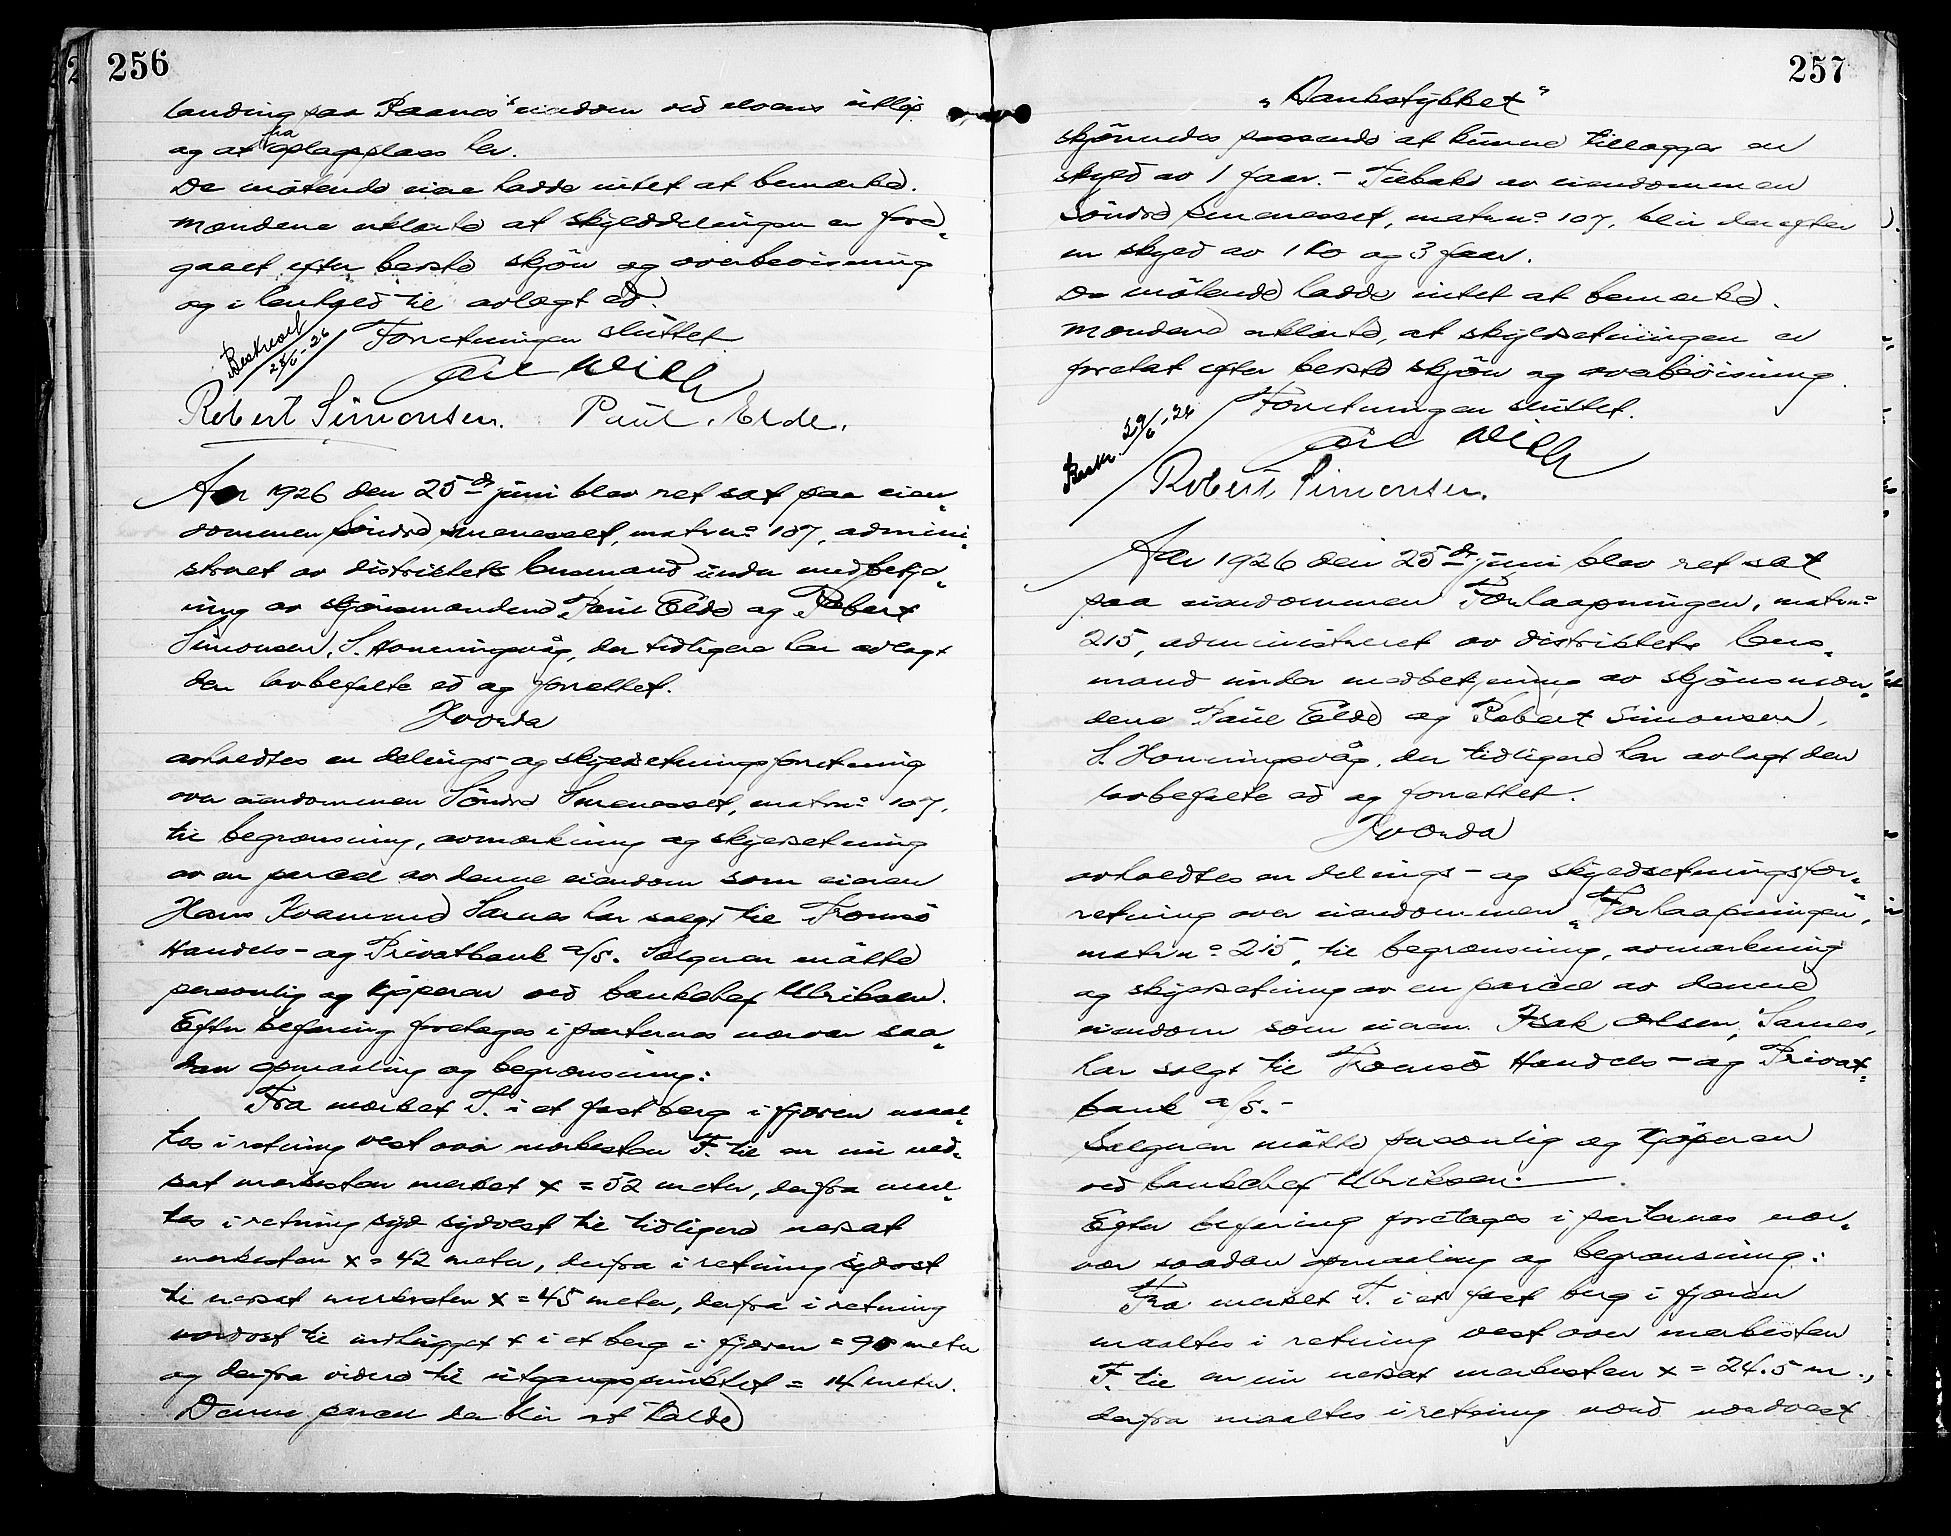 256
landing paa Raanes' eiendom ved elvens utløp
og at fra oplagsplass her.
De møtende eiere hadde intet at bemerke.
Mændene erklærte at skylddelingen er fore-
gaaet efter bedste skjøn og overbevisning
og i henhold til avlagt ed.
Forretningen sluttet
Beskrevet
28/6-26
Carl Will
Robert Simonsen. Paul Elde.
Aar 1926 den 25de juni blev ret sat paa eien-
dommen Söndre Smeneset, matrn: 107, admini-
streret av distriktets lensmand under medbetje-
ning av skjønsmændene Paul Elde og Robert
Simonsen, S. Honningsvåg, der tidligere har avlagt
den lovbefalte ed og forrettet.
Hvorda
avholdtes en delings- og skyldsetningsforretning
over eiendommen Söndre Smeneset, matrn: 107,
til begrænsning, avmerkning og skyldsetning
av en parcel av denne eiendom som eieren
Hans Kvamund Sarnes har solgt til Tromsö
Handels- og Privatbank a/s. Sælgeren møtte
personlig og kjøperen ved bankchef Ulriksen.
Efter befaring foretages i parternes nærvær saa-
dan opmaaling og begrænsning:
Fra merket T. i et fast berg i fjæren maal-
tes i retning vest over merkesten F. til en ny ned-
sat merkesten merket x = 52 meter, derfra maal-
tes i retning syd sydvest til tidligere nedsat
merkesten x = 42 meter, derfra i retning sydost
til nedsat merkesten x = 45 meter, derfra i retning
nordost til indhugget x i et berg i fjæren = 90 meter
og derfra videre til utgangspunktet = 14 meter.
Denne parcel der blir at kalde
257
"Bankstykket"
skjønnedes passende at kunne tillægges en
skyld av 1 øre. - Tilbake av eiendommen
Söndre Smeneset, matrn: 107, blir derefter
en skyld av 1 ko og 3 faar.
De møtende hadde intet at bemerke.
Mændene erklærte, at skyldsetningen er
foretat efter bedste skjøn og overbevisning.
Forretningen sluttet.
Beskr. 29/6-26
Carl Will
Robert Simonsen.
Aar 1926 den 25de juni blev ret sat
paa eiendommen Forhaapningen, matrn:
215, administreret av distriktets lens-
mand under medbetjening av skjønsmæn-
dene Paul Elde og Robert Simonsen,
S. Honningsvåg, der tidligere har avlagt den
lovbefalte ed og forrettet.
Hvorda
avholdtes en delings- og skyldsetningsfor-
retning over eiendommen "Forhaapningen",
matrn: 215, til begrænsning, avmerkning
og skyldsetning av en parcel av denne
eiendom som eieren Isak Olsen, Sarnes,
har solgt til Tromsö Handels- og Privat-
bank a/s. -
Sælgeren møtte personlig og kjøperen
ved bankchef Ulriksen.
Efter befaring foretages i parternes nær-
vær saadan opmaaling og begrænsning:
Fra merket T. i et fast berg i fjæren
maaltes i retning vest over merkesten
F. til en ny nedsat merkesten x = 24.5 m.,
derfra maaltes i retning nord nordvest